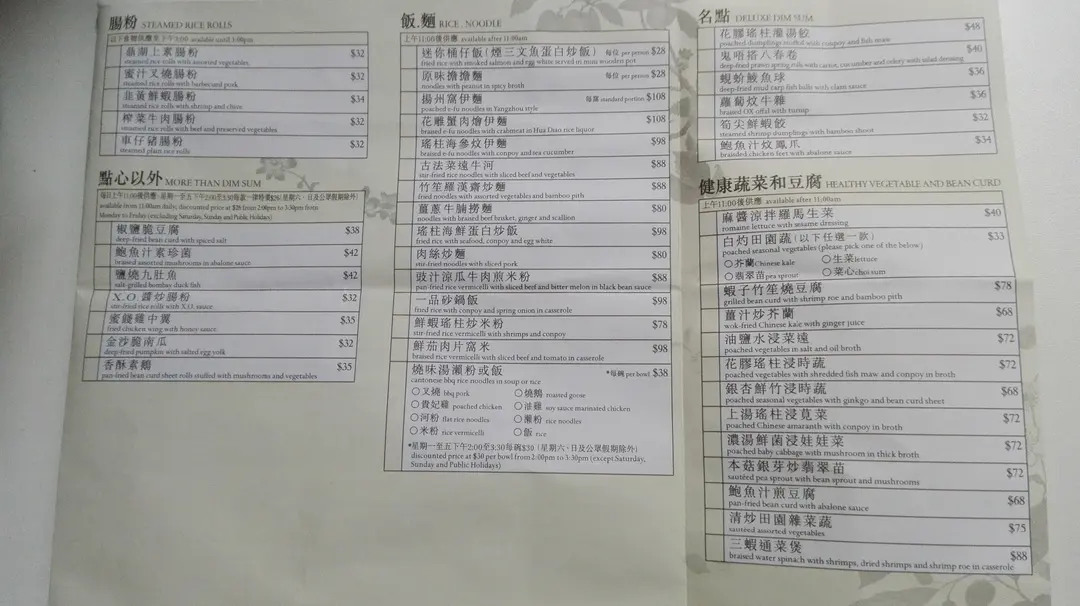 腸粉 STEAMED RICE ROLLS
available until 3:00pm
鼎湖上素腸粉 $32
steamed rice rolls with assorted vegetables
蜜汁叉燒腸粉 $32
steamed rice rolls with barbecued pork
韭黃鮮蝦腸粉 $34
steamed rice rolls with shrimp and chive
榨菜牛肉腸粉 $32
steamed rice rolls with beef and preserved vegetables
車仔豬腸粉 $32
steamed plain rice rolls
點心以外 MORE THAN DIM SUM
每日上午11:00後供應
available from 11:00am daily; discounted price at $28 from 2:00pm to 3:30pm from
Monday to Friday (excluding Saturday, Sunday and Public Holidays)
椒鹽脆豆腐 $38
deep-fried bean curd with spiced salt
鮑魚汁素珍菌 $42
braised assorted mushrooms in abalone sauce
鹽燒九肚魚 $42
salt-grilled bombay duck fish
X.O.醬炒腸粉 $32
stir-fried rice rolls with X.O. sauce
蜜餞雞中翼 $35
fried chicken wing with honey sauce
金沙脆南瓜 $32
deep-fried pumpkin with salted egg yolk
香酥素鵝 $35
pan-fried bean curd sheet rolls stuffed with mushrooms and vegetables
飯.麵 RICE . NOODLE
上午11:00後供應 available after 11:00am
迷你桶仔飯(煙三文魚蛋白炒飯) 每位 per person $28
fried rice with smoked salmon and egg white served in mini wooden pot
原味擔擔麵 每位 per person $28
noodles with peanut in spicy broth
揚州窩伊麵 每窩 standard portion $108
poached e-fu noodles in Yangzhou style
花雕蟹肉燴伊麵 $108
braised e-fu noodles with crabmeat in Hua Diao rice liquor
瑤柱海參炆伊麵 $98
braised e-fu noodles with conpoy and sea cucumber
古法菜遠牛河 $88
stir-fried rice noodles with sliced beef and vegetables
竹笙羅漢齋炒麵 $88
fried noodles with assorted vegetables and bamboo pith
薑蔥牛腩撈麵 $80
noodles with braised beef brisket, ginger and scallion
瑤柱海鮮蛋白炒飯 $98
fried rice with seafood, conpoy and egg white
肉絲炒麵 $80
stir-fried noodles with sliced pork
豉汁涼瓜牛肉煎米粉 $88
pan-fried rice vermicelli with sliced beef and bitter melon in black bean sauce
一品砂鍋飯 $98
fried rice with conpoy and spring onion in casserole
鮮蝦瑤柱炒米粉 $78
stir-fried rice vermicelli with shrimps and conpoy
鮮茄肉片窩米 $98
braised rice vermicelli with sliced beef and tomato in casserole
燒味湯瀨粉或飯 *每碗 per bowl $38
cantonese bbq rice noodles in soup or rice
○叉燒 bbq pork ○燒鵝 roasted goose
○貴妃雞 poached chicken ○油雞 soy sauce marinated chicken
○河粉 flat rice noodles ○瀨粉 rice noodles
○米粉 rice vermicelli ○飯 rice
*星期一至五下午2:00至3:30每碗$30 (星期六、日及公眾假期除外)
discounted price at $30 per bowl from 2:00pm to 3:30pm (except Saturday,
Sunday and Public Holidays)
名點 DELUXE DIM SUM
花膠瑤柱灌湯餃 $48
poached dumplings stuffed with conpoy and fish maw
鬼唔搭八春卷 $40
deep-fried prawn spring rolls with carrot, cucumber and celery with salad dressing
蜆蚧鯪魚球 $36
deep-fried mud carp fish balls with clam sauce
蘿蔔炆牛雜 $36
braised OX offal with turnip
筍尖鮮蝦餃 $32
steamed shrimp dumplings with bamboo shoot
鮑魚汁炆鳳爪 $34
braided chicken feet with abalone sauce
健康蔬菜和豆腐 HEALTHY VEGETABLE AND BEAN CURD
上午11:00後供應 available after 11:00am
麻醬涼拌羅馬生菜 $40
romaine lettuce with sesame dressing
白灼田園蔬(以下任選一款) $33
poached seasonal vegetables (please pick one of the below)
○芥蘭 Chinese kale ○生菜 lettuce
○翡翠苗 pea sprout ○菜心 choi sum
蝦子竹笙燒豆腐 $78
grilled bean curd with shrimp roe and bamboo pith
薑汁炒芥蘭 $68
wok-fried Chinese kale with ginger juice
油鹽水浸菜遠 $72
poached vegetables in salt and oil broth
花膠瑤柱浸時蔬 $72
poached vegetables with shredded fish maw and conpoy in broth
銀杏鮮竹浸時蔬 $68
poached seasonal vegetables with ginkgo and bean curd sheet
上湯瑤柱浸莧菜 $72
poached Chinese amaranth with conpoy in broth
濃湯鮮菌浸娃娃菜 $72
poached baby cabbage with mushroom in thick broth
本菇銀芽炒翡翠苗 $72
sautéed pea sprout with bean sprout and mushrooms
鮑魚汁煎豆腐 $68
pan-fried bean curd with abalone sauce
清炒田園雜菜蔬 $75
sautéed assorted vegetables
三蝦通菜煲 $88
braised water spinach with shrimps, dried shrimps and shrimp roe in casserole